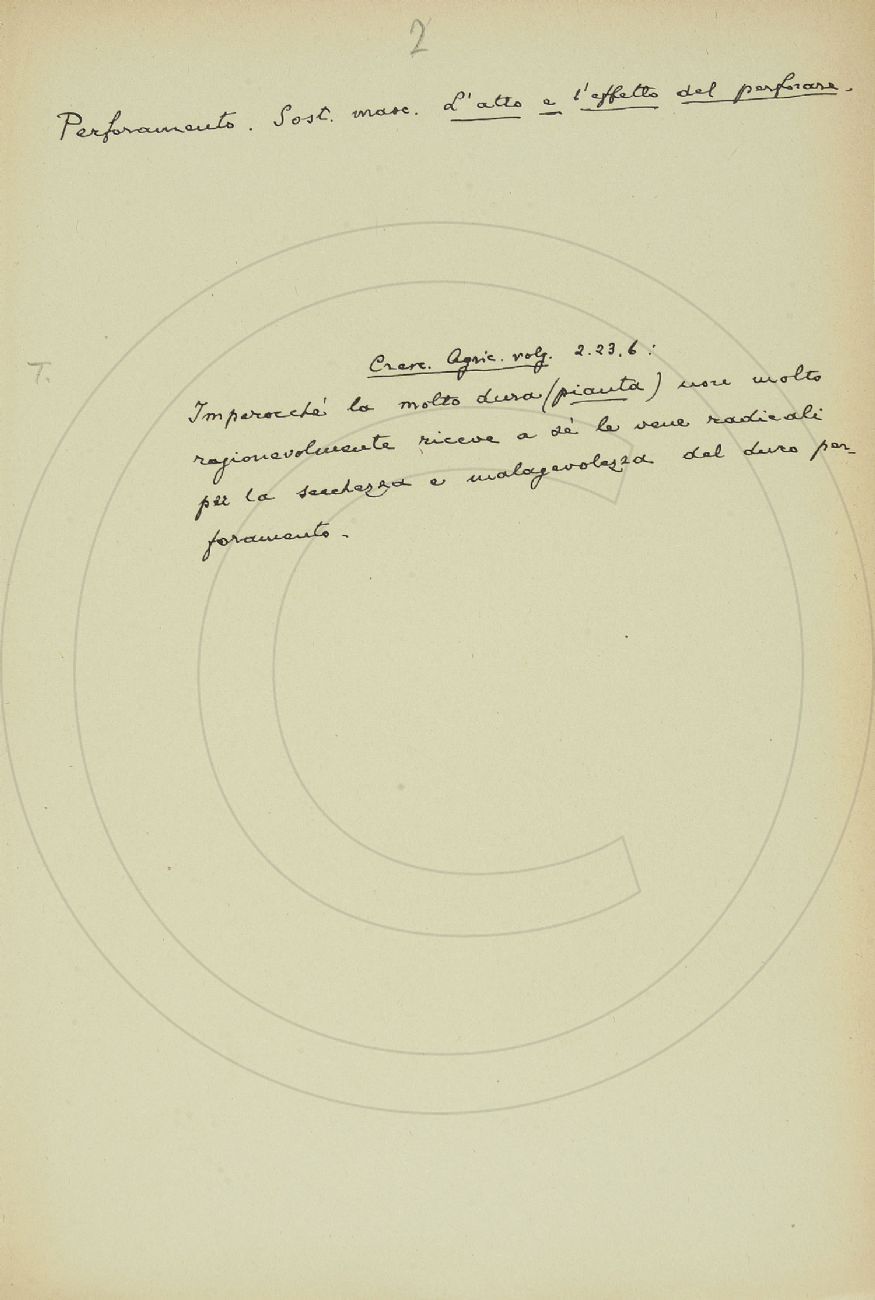 2
Perforamento. Sost. masc. L'atto e l'effetto del perforare.
T.
Cresc. Agric. volg. 2.23.6:
Imperocché la molto dura (pianta) non molto
ragionevolmente riceve a sé le vene radicali
per la secchezza e malagevolezza del duro per-
foramento.